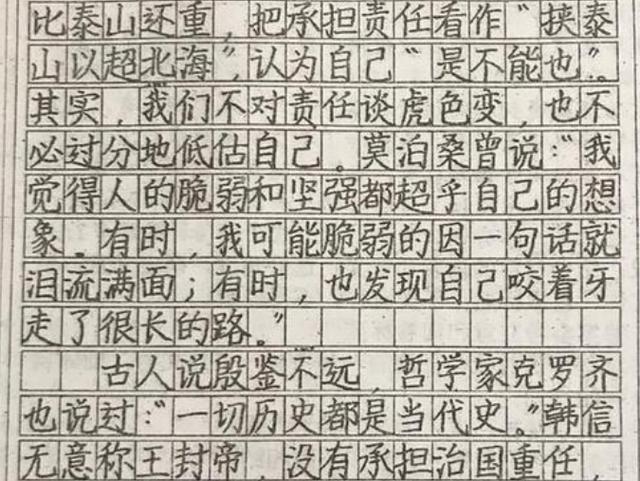 比泰山还重，把承担责任看作“挟泰
山以超北海”，认为自己“是不能也”。
其实，我们不对责任谈虎色变，也不
必过分地低估自己。莫泊桑曾说：“我
觉得人的脆弱和坚强都超乎自己的想
象。有时，我可能脆弱的因一句话就
泪流满面；有时，也发现自己咬着牙
走了很长的路。”
古人说殷鉴不远，哲学家克罗齐
也说过：“一切历史都是当代史。”韩信
无意称王封帝，没有承担治国重任，